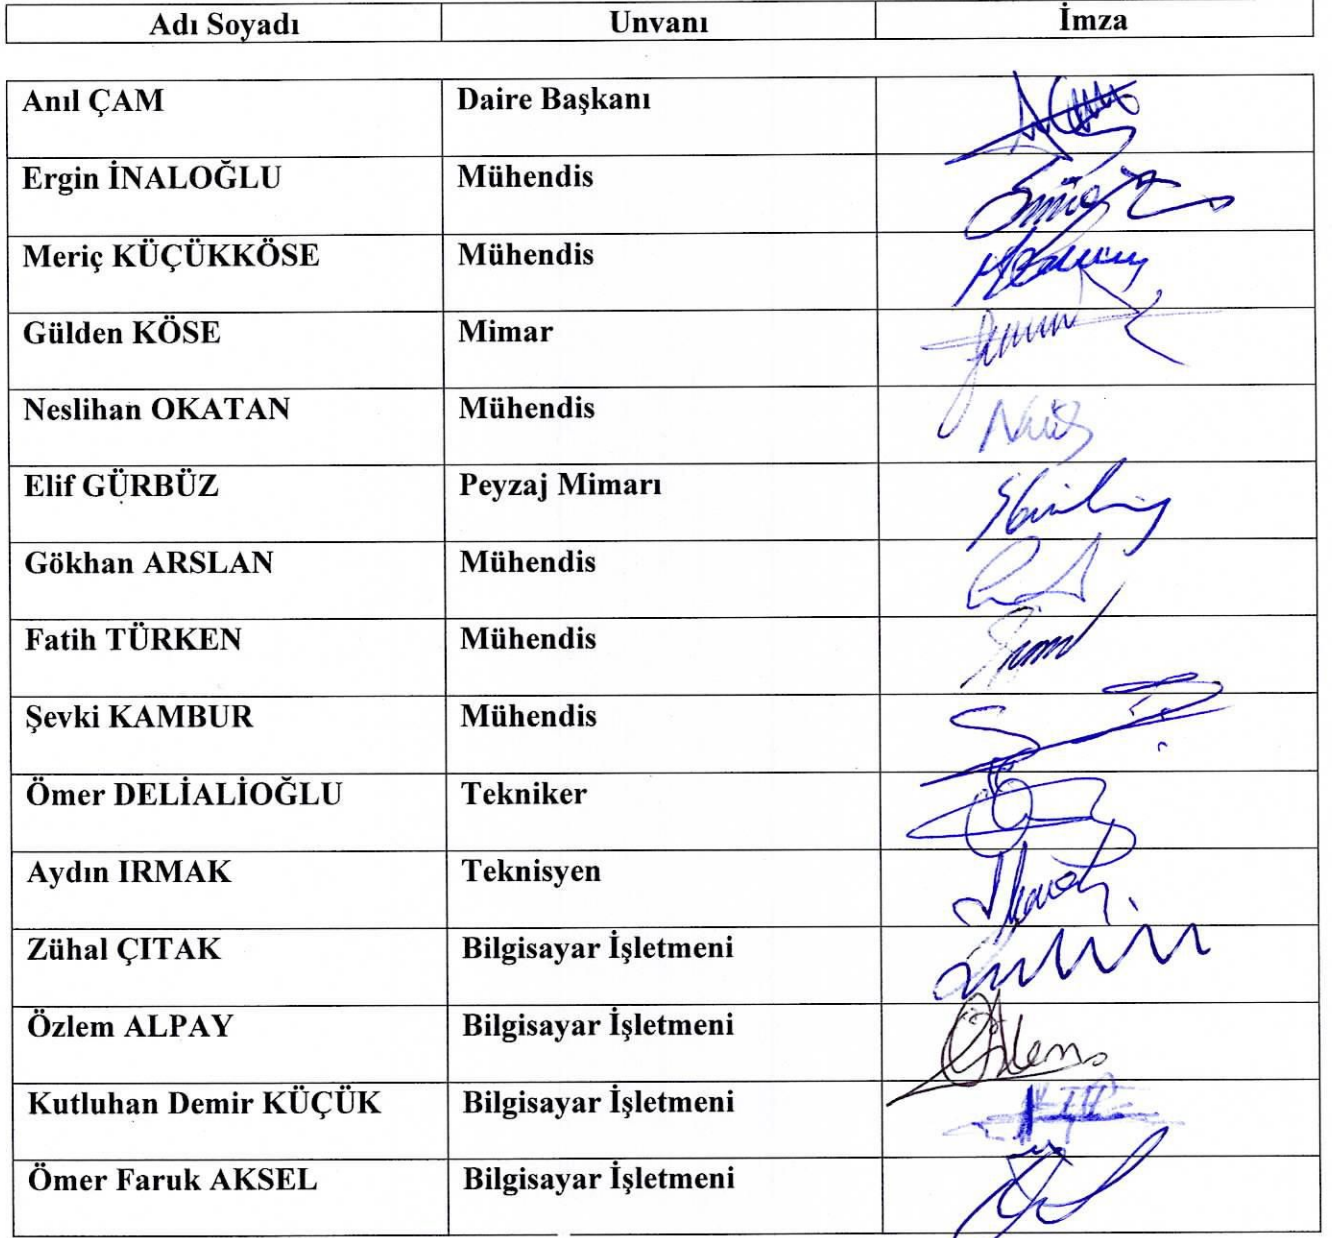 Adı Soyadı Unvanı İmza
Anıl ÇAM Daire Başkanı
Ergin İNALOĞLU Mühendis
Meriç KÜÇÜKKÖSE Mühendis
Gülden KÖSE Mimar
Neslihan OKATAN Mühendis
Elif GÜRBÜZ Peyzaj Mimarı
Gökhan ARSLAN Mühendis
Fatih TÜRKEN Mühendis
Şevki KAMBUR Mühendis
Ömer DELİALİOĞLU Tekniker
Aydın IRMAK Teknisyen
Zühal ÇITAK Bilgisayar İşletmeni
Özlem ALPAY Bilgisayar İşletmeni
Kutluhan Demir KÜÇÜK Bilgisayar İşletmeni
Ömer Faruk AKSEL Bilgisayar İşletmeni